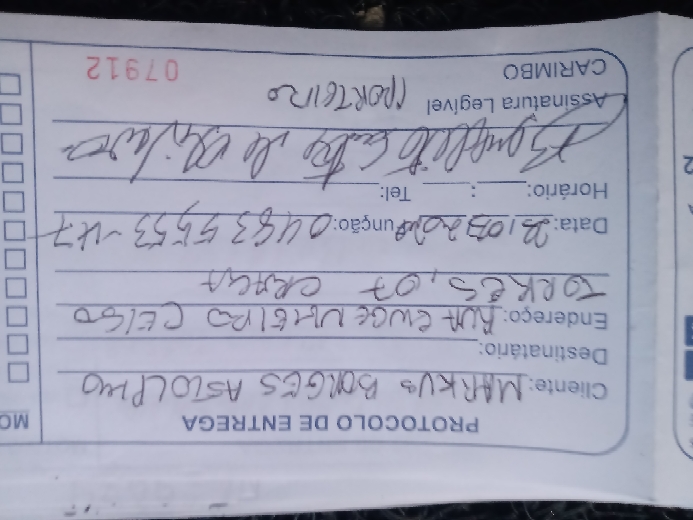 PROTOCOLO DE ENTREGA
MO
Cliente: MARKUS BORGES ASTOLPHO
Destinatário:
Endereço: RUA ENGENHEIRO CELSO
TORRES, 07 CRAGA
Data: 23/03/2020 unção: 04835553-47
Horário: : Tel:
Benedito de
Assinatura Legível (PORTEIRO
CARIMBO
07912